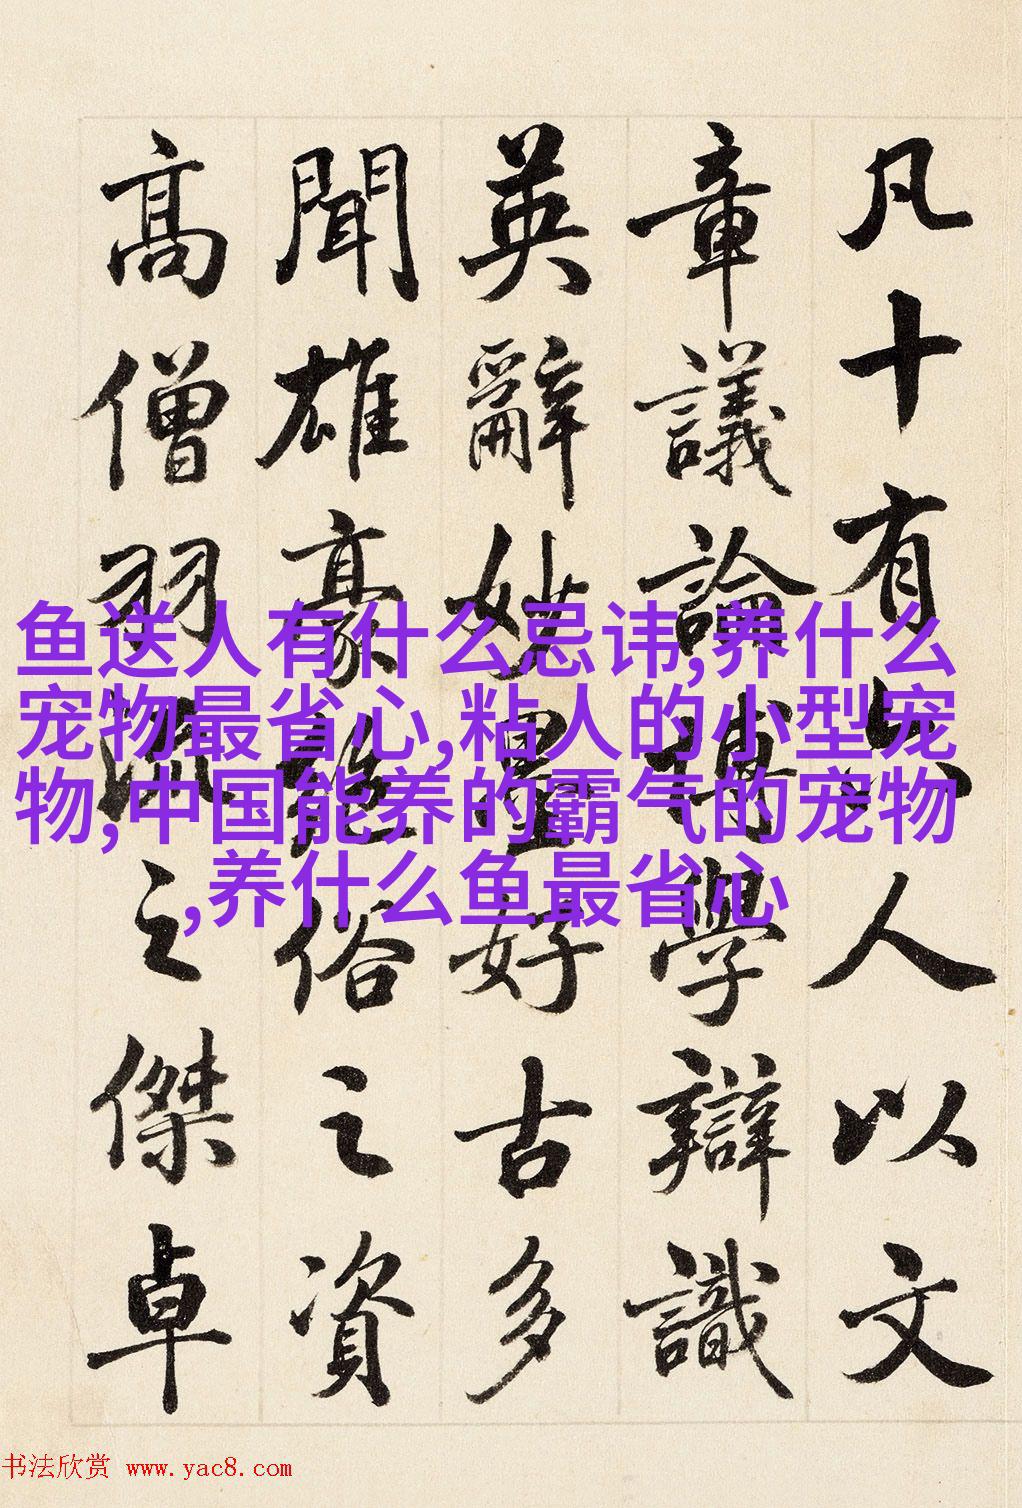 凡十有六人以文
章議論博學辯識
英辭妙墨好古多
聞雄豪絕俗之資
高僧羽流之傑卓
鱼送人有什么忌讳,养什么
宠物最省心,粘人的小型宠
物,中国能养的霸气的宠物
,养什么鱼最省心
书法欣赏 www.yac8.com